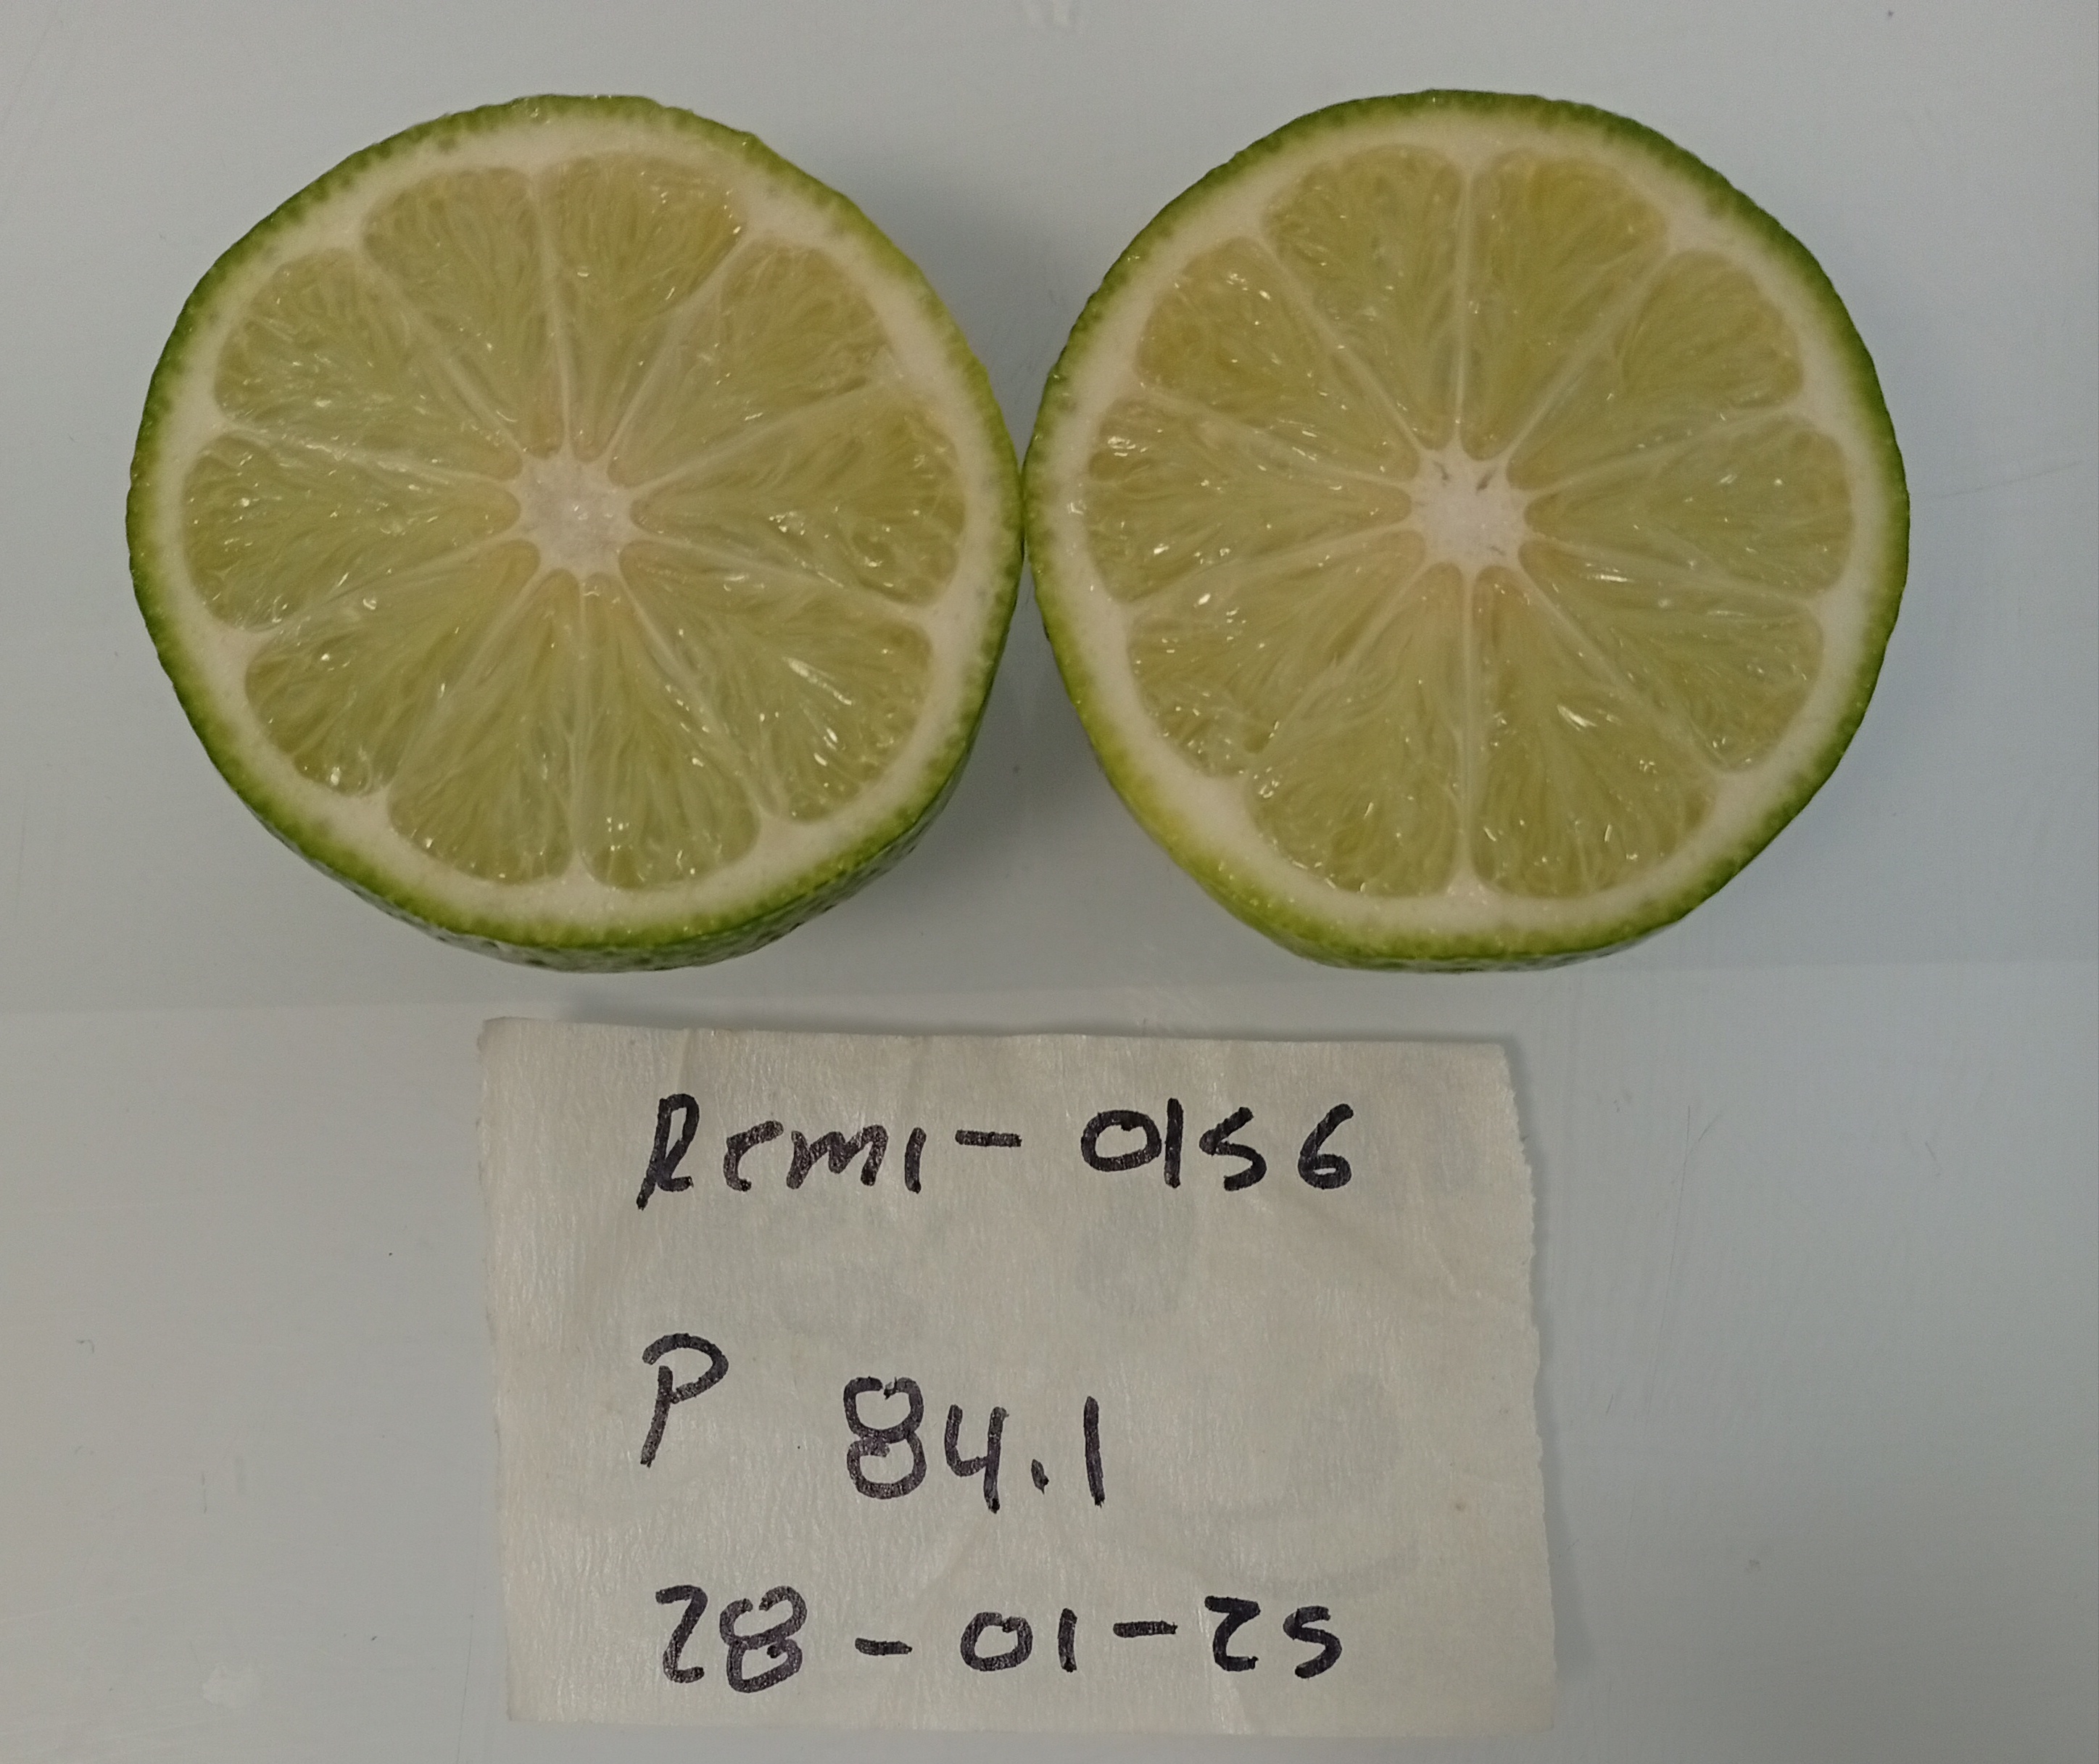 Rcmi-0156
P 84.1
28-01-25